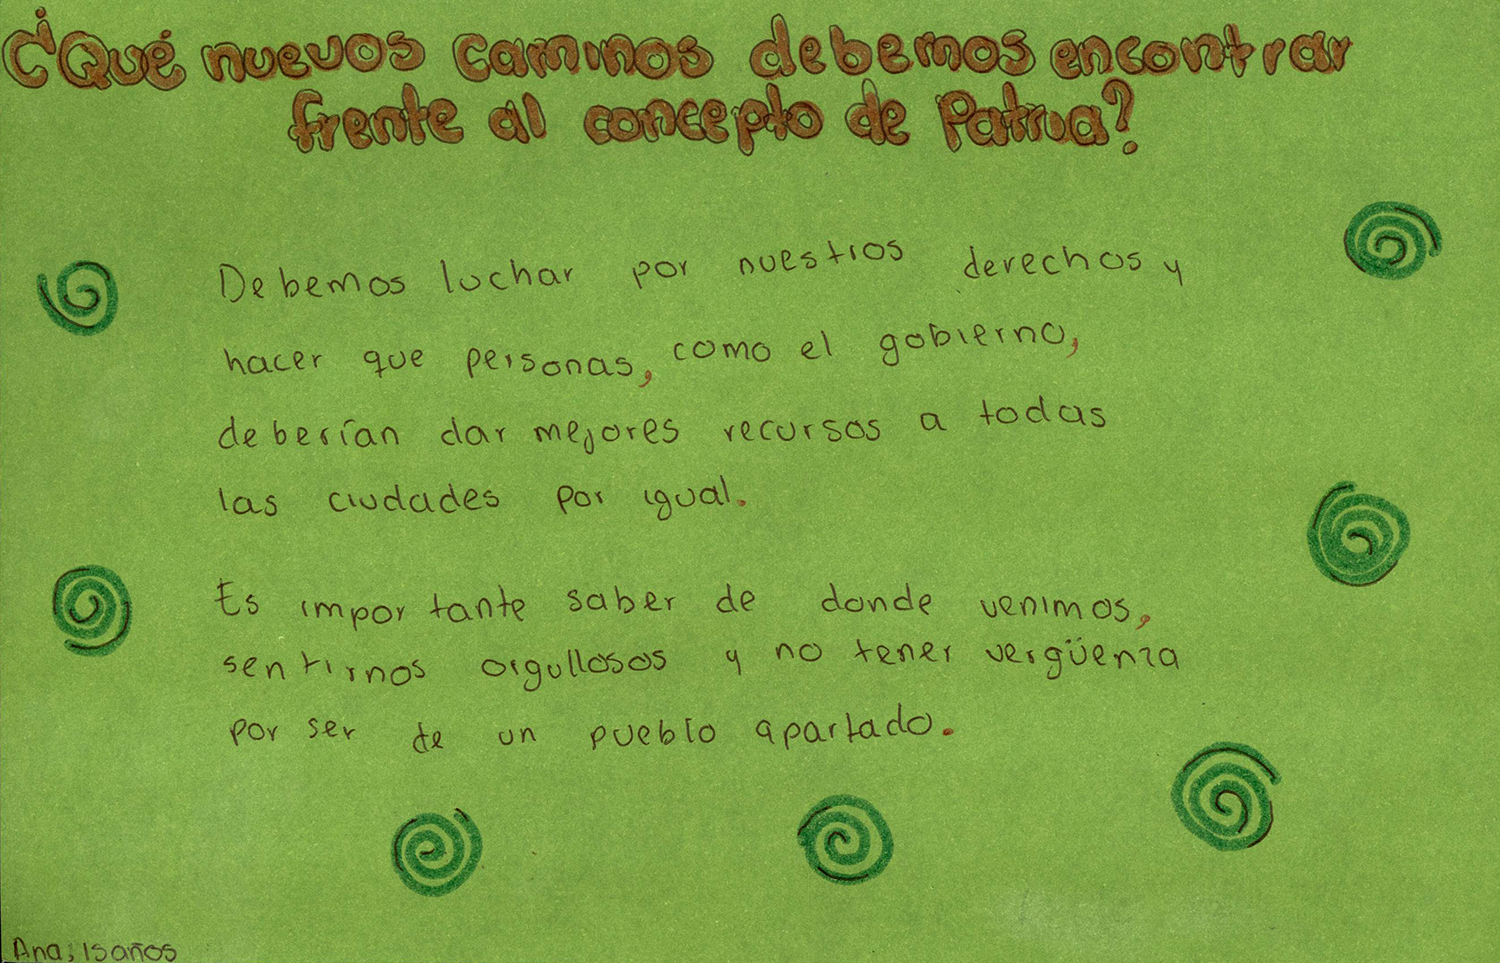 ¿Qué nuevos caminos debemos encontrar
frente al concepto de Patria?
Debemos luchar por nuestros derechos y
hacer que personas, como el gobierno,
deberían dar mejores recursos a todas
las ciudades por igual.
Es importante saber de donde venimos,
sentirnos orgullosos y no tener vergüenza
por ser de un pueblo apartado.
Ana, 15 años